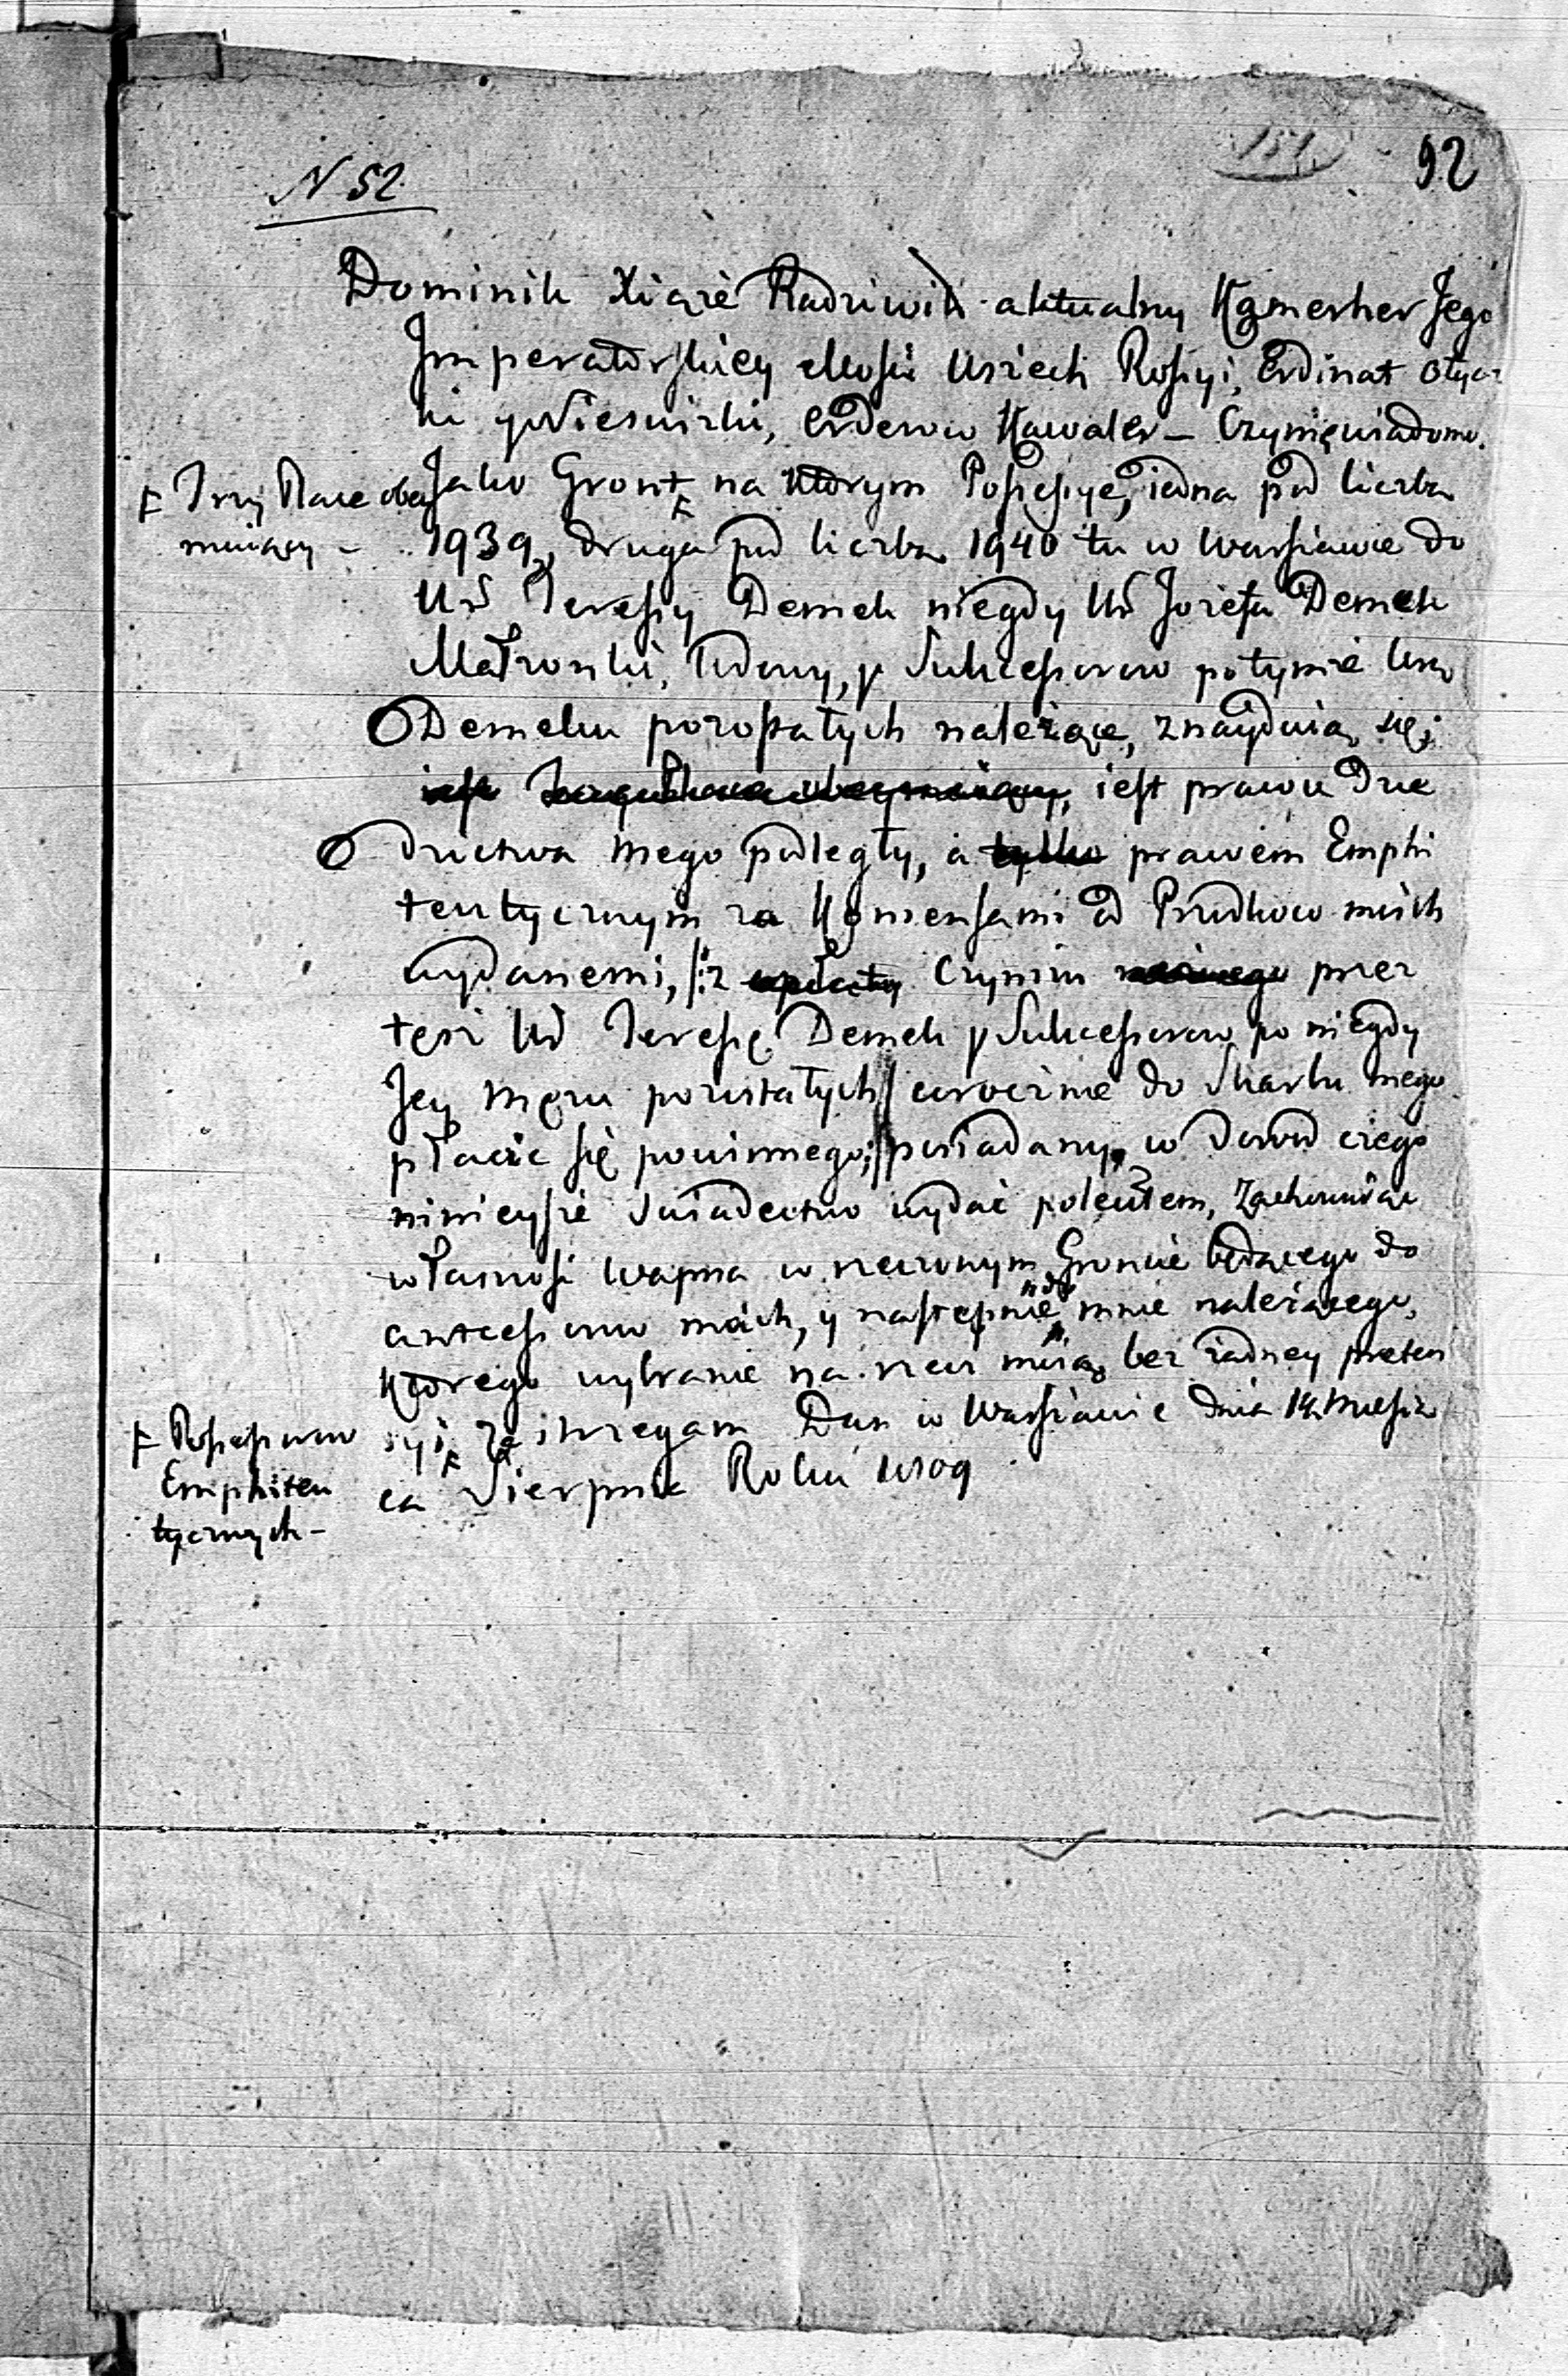 N 52
92
Dominik Xiąże Radziwiłł aktualny Kamerher Jego
Imperatorskiey Mości Wszech Rossyi, Ordinat Ołyc
ki y Nieswizki, Orderow Kawaler – Czynię wiadomo.
Jako Gront na ktorym Possessye, iedna pod liczbą
Trzy Place obey
muiący –
1939, druga pod liczbą 1940 tu w Warszawie do
Ur Teressy Demek niegdy Ur Jozefa Demek
Małzonki, Wdowy, y Sukcessorow po tymże Urm
Demeku pozostałych należące, znayduią się;
iest Trzy Place obeymuiący, iest prawu Dzie
dzictwa mego podległy, a tylko prawem Emphi
teutycznym za Konsensami od Przodkow moich
wydanemi, /:z opłatą Czynszu przez
też Ur Teressę Demek y Sukcessorow po niegdy
Jey Mężu pozostałych corocznie do Skarbu mego
płacić się powinnego:/ posiadany, w dowod czego
ninieysze Swiadectwo wydać poleciłem, Zachowuiąc
własność Wapna w rzeczonym Groncie będącego do
antcessorow moich, y następnie do mnie należącego,
ktorego wybranie na rzecz moią, bez żadney preten
syi zastrzegam Dan w Warszawie dnia 14 Miesią
Possessorow
Emphiteu
tycznych –
ca Sierpnia Roku 1809